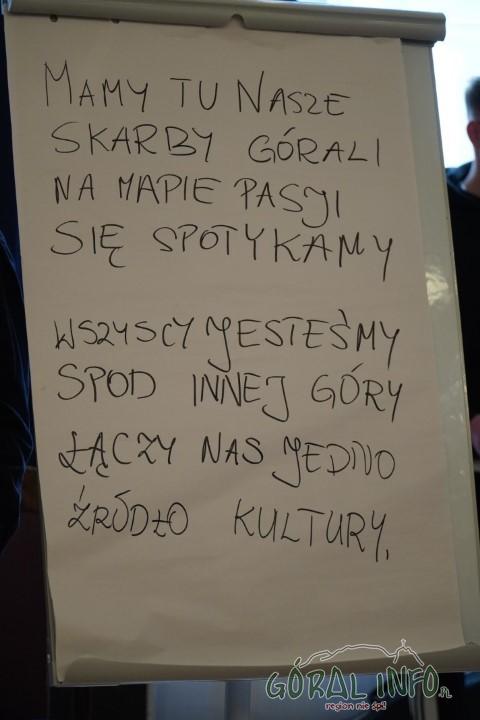 MAMY TU NASZE
SKARBY GÓRALI
NA MAPIE PASJI
SIĘ SPOTYKAMY
WSZYSCY JESTEŚMY
SPOD INNEJ GÓRY
ŁĄCZY NAS JEDNO
ŹRÓDŁO KULTURY.
GÓRAL INFO.PL
region nie śpi!